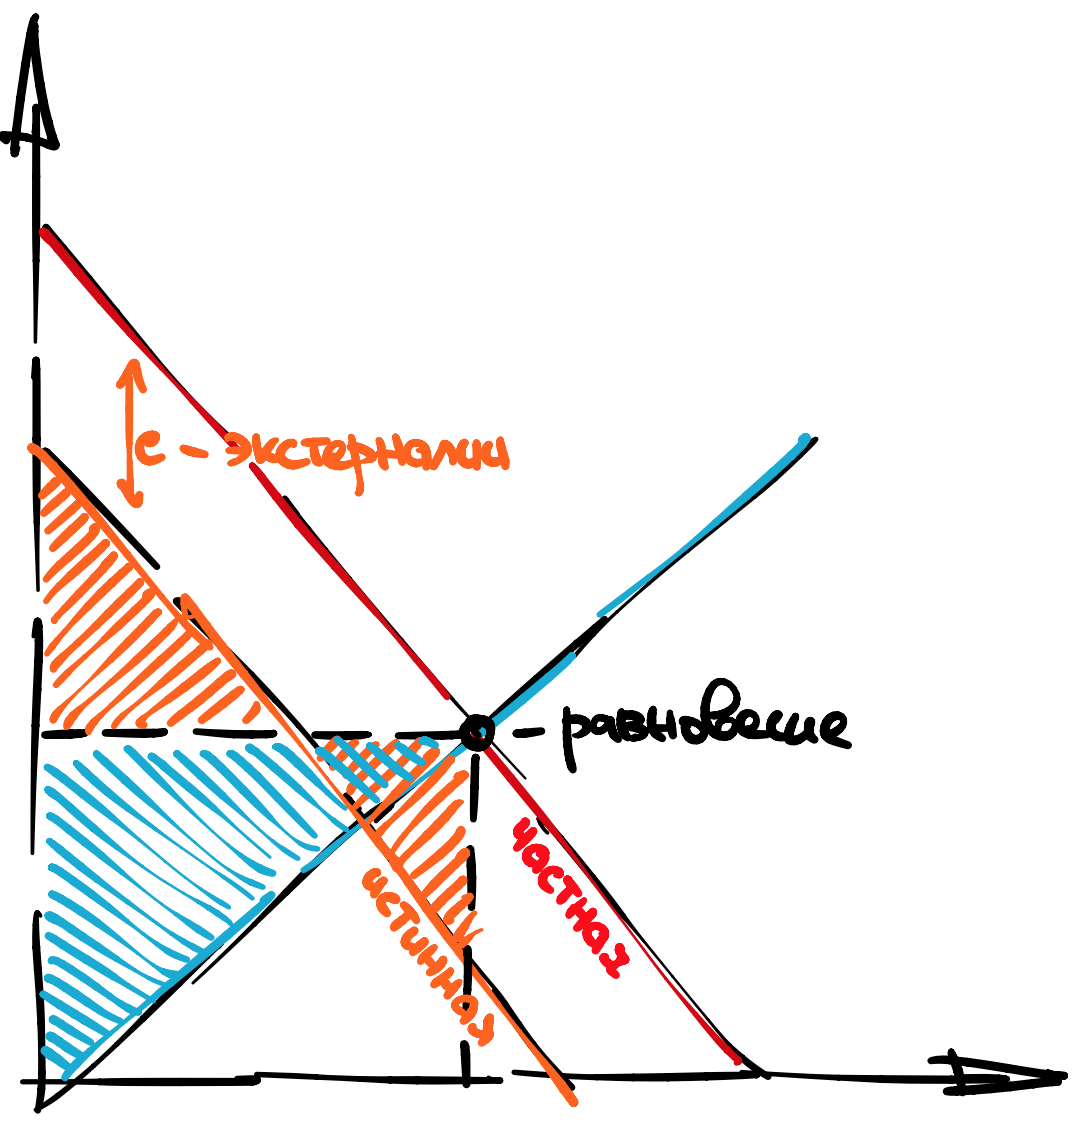 e - экстерналии
равновесие
частная
истинная